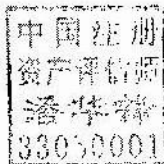 中国注册
资产评估师
潘华
33050001